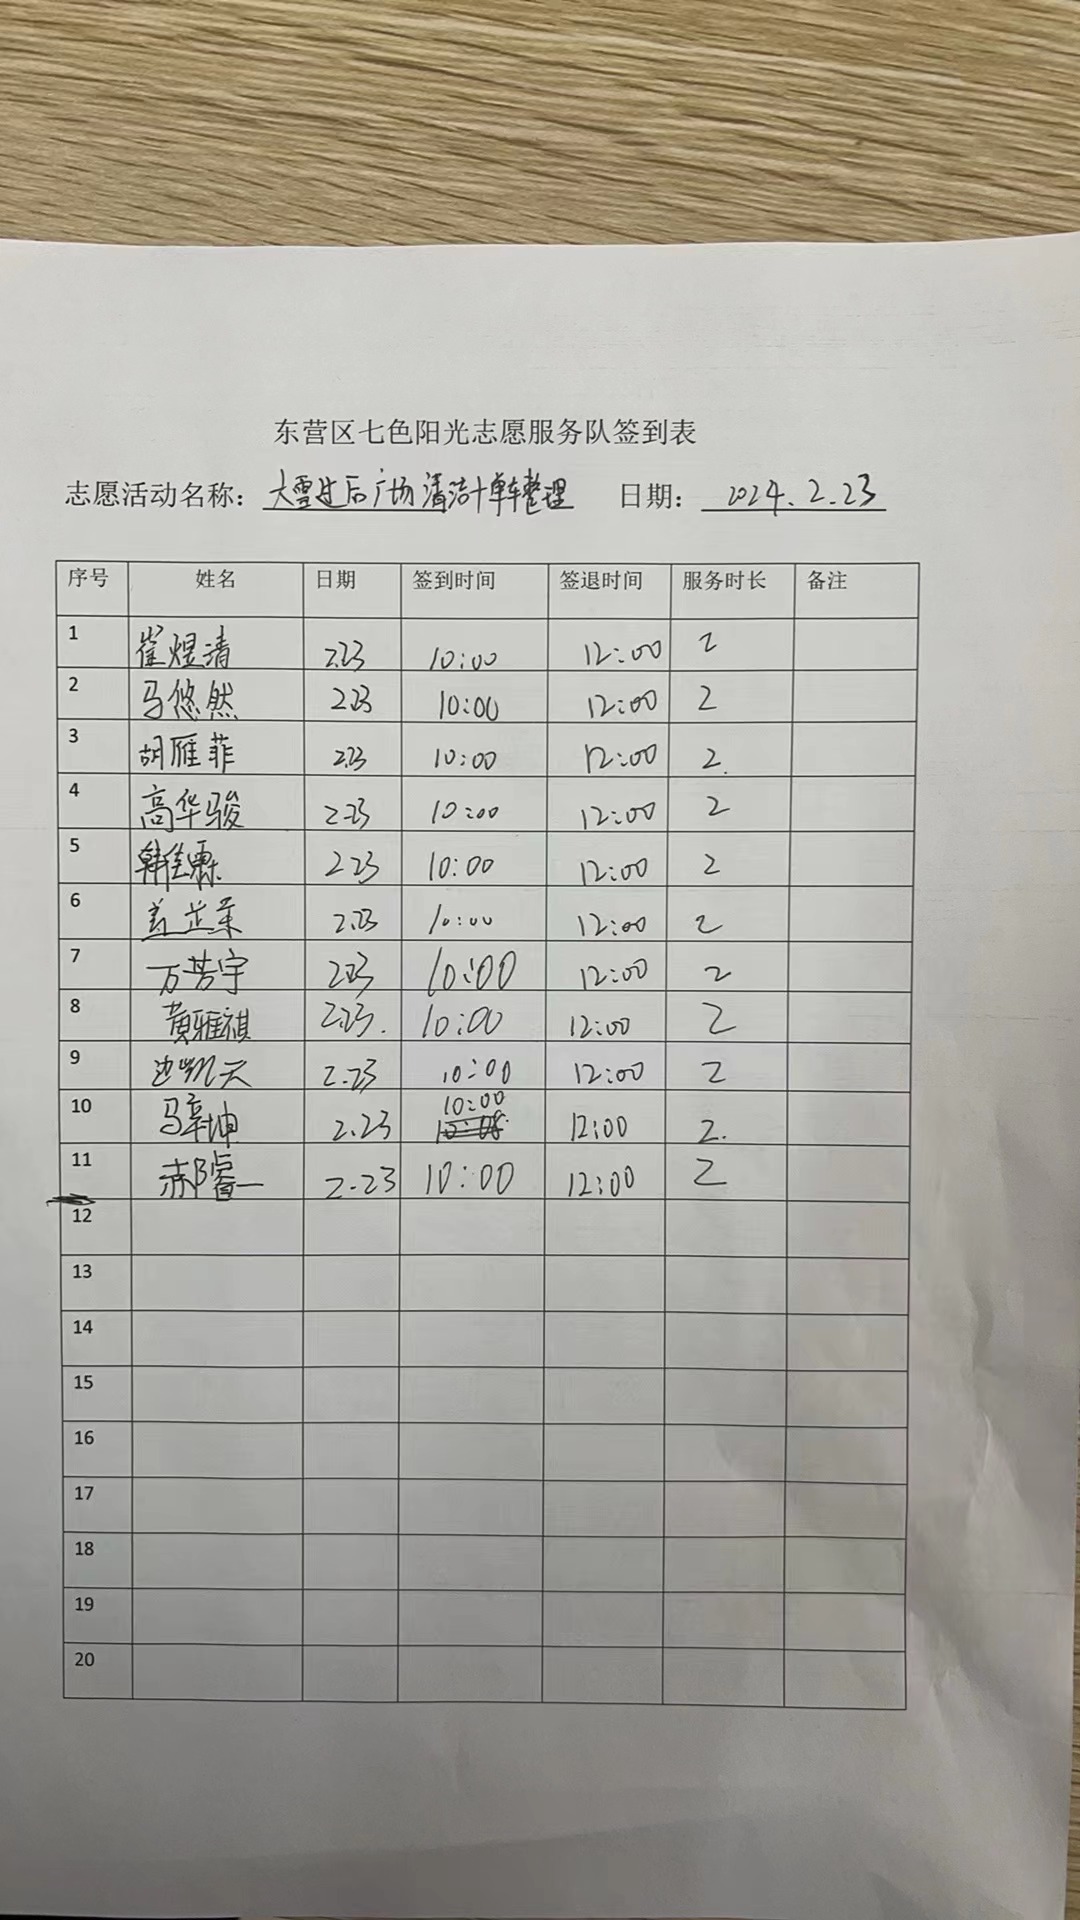 东营区七色阳光志愿服务队签到表
志愿活动名称：大雪过后广场清洁+单车整理 日期：2024.2.23
序号 姓名 日期 签到时间 签退时间 服务时长 备注
1 崔煜清 2.23 10:00 12:00 2
2 马悠然 2.23 10:00 12:00 2
3 胡雁菲 2.23 10:00 12:00 2.
4 高华骏 2.23 10:00 12:00 2
5 韩佳霖 2.23 10:00 12:00 2
6 2.23 10:00 12:00 2
7 万芳宇 2.23 10:00 12:00 2
8 黄雅祺 2.23. 10:00 12:00 2
9 边凯天 2.23 10:00 12:00 2
10 马幸坤 2.23 10:00 12:00 2.
11 郝睿一 2.23 10:00 12:00 2
12
13
14
15
16
17
18
19
20